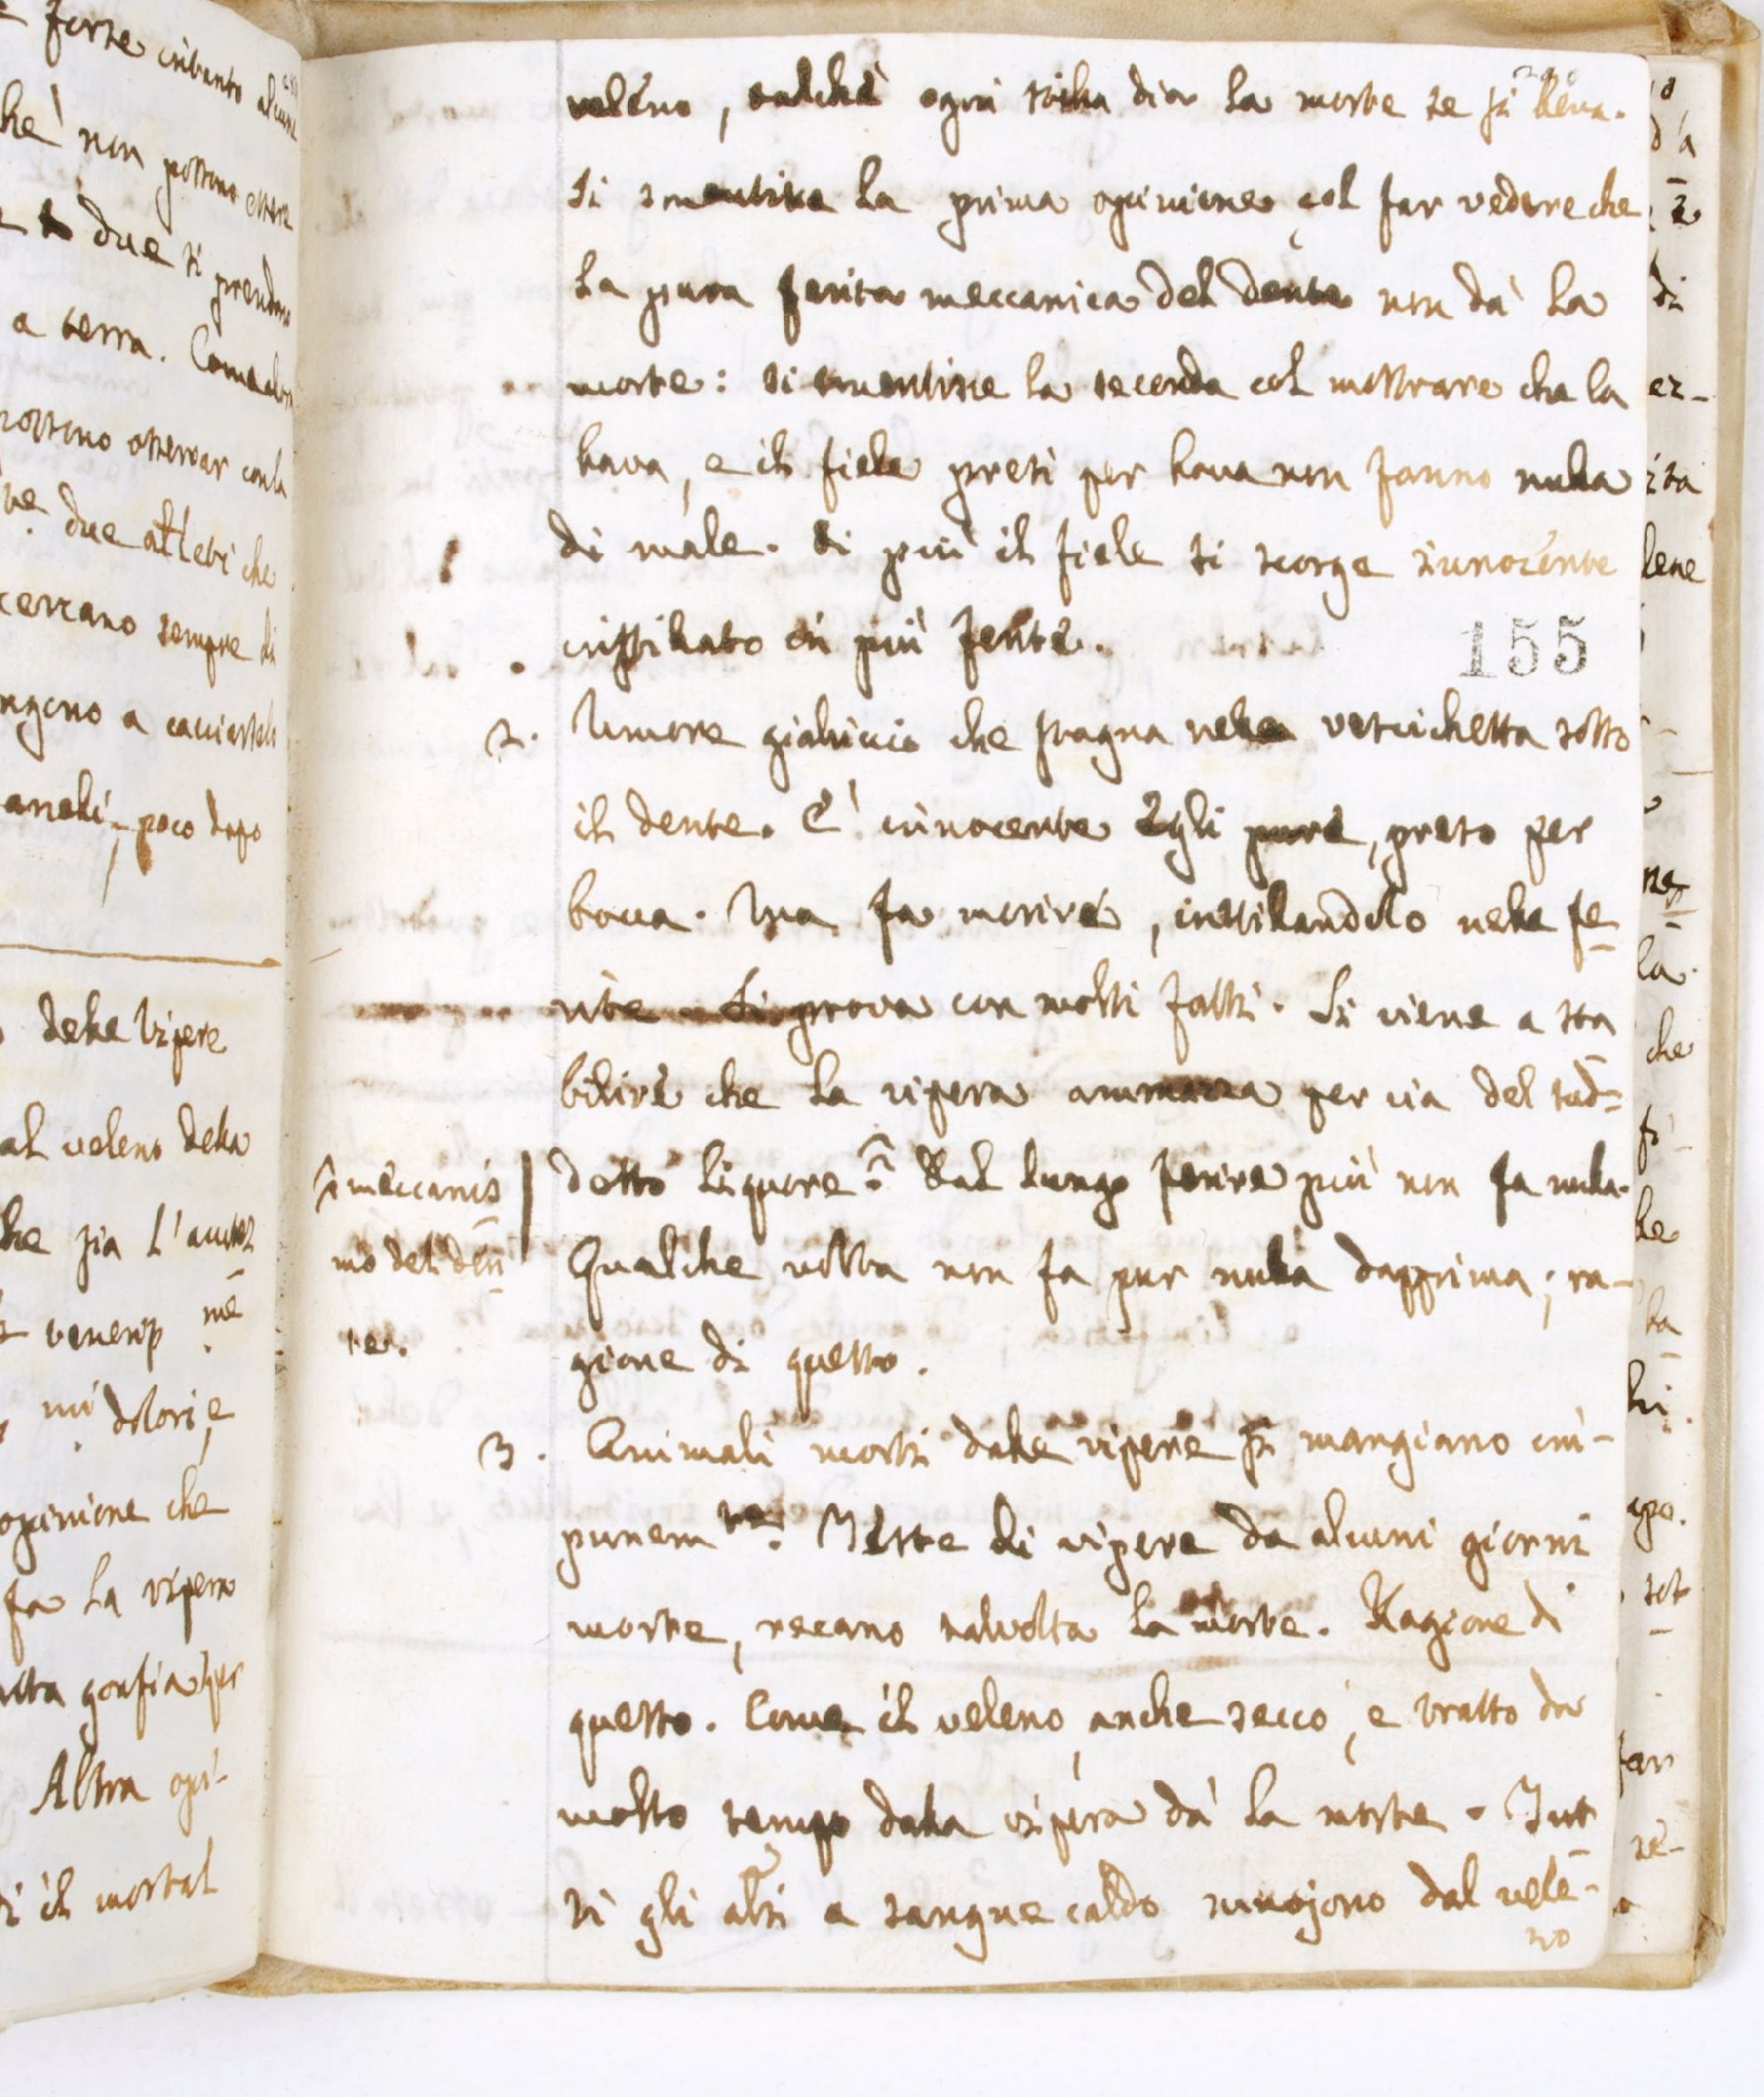 forse intanto alcune
he' non possono essere
due si prendono
a terra.
possino osservar con la
ve due allevi che
cercano sempre di
ngono a cacciarsele
aneli, poco dopo
delle Vipere
al veleno della
he sia l'autor
mi dolori, e
opinione che
fa la vipera
gonfia per
Altra opi-
i il mortal
veleno, talchè ogni stilla dia la morte se si beva.
Si smentisce la prima opinione col far vedere che
la pura ferita meccanica del dente non dà la
morte: si smentisce la seconda col mostrare che la
bava, e il fiele presi per bocca non fanno nulla
di male. Di più il fiele si scorge innocente
instillato in più ferite.
155
2. Umore gialliccio che stagna nella vescichetta sotto
il dente. È innocente Egli pure, preso per
bocca. Ma fa morire, instillandolo nelle fe-
rite. Si prova con molti fatti. Si viene a sta
bilire che la vipera ammazza per via del sud-
detto liquore. Dal lungo ferire più non fa nulla.
^ meccanis
mo del den
te.
Qualche volta non fa pur nulla dapprima; ra-
gione di questo.
3. Animali morti dalle vipere si mangiano im-
punem te. Teste di vipere da alcuni giorni
morte, recano talvolta la morte. Ragione di
questo. Come il veleno, anche secco, e tratto da
molto tempo dalla vipera dà la morte. Tut
ti gli altri a sangue caldo muojono dal vele-
no